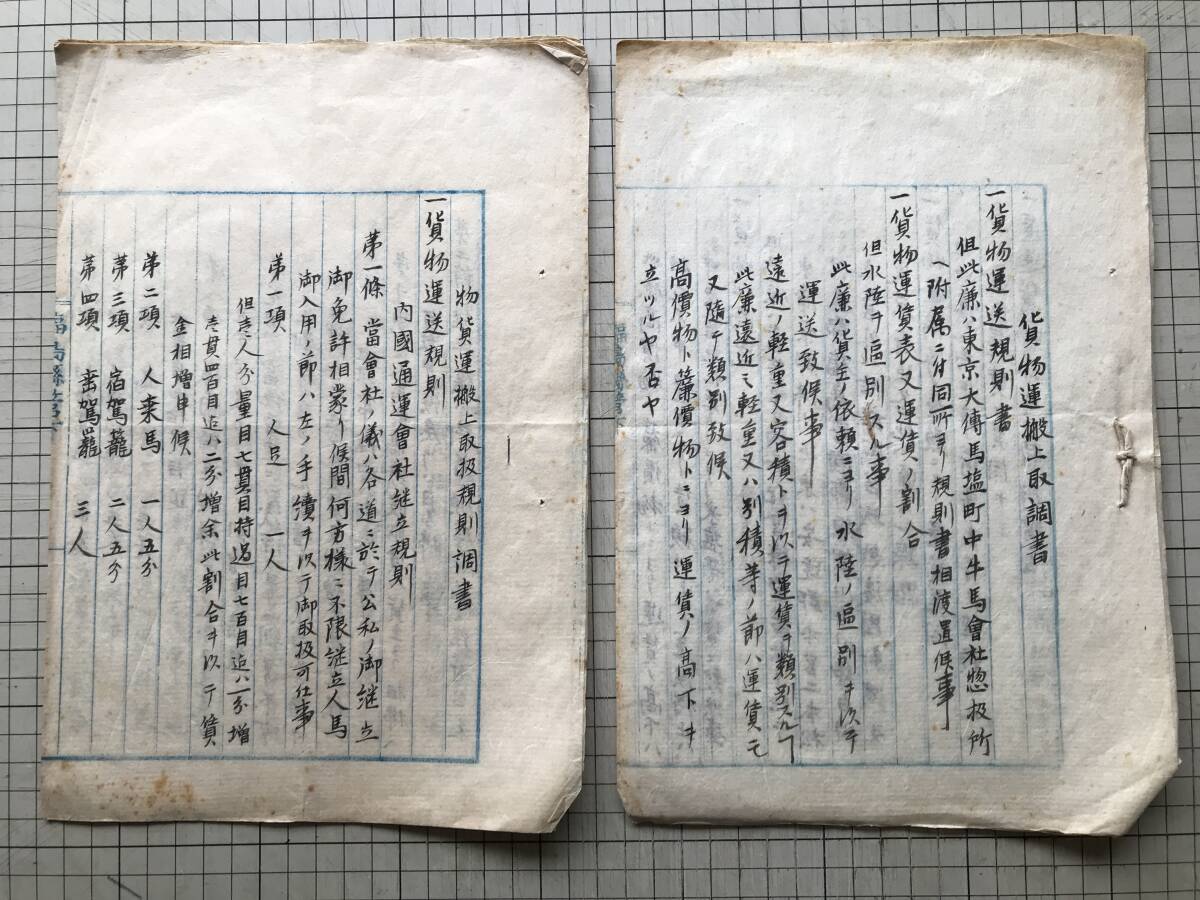 貨物運搬上取調書
一貨物運送規則書
但此廉ハ東京大傳馬塩町中牛馬會社惣扱所
ヘ附属ニ付同所ヨリ規則書相渡置候事
一貨物運賃表又運賃ノ割合
但水陸ヲ區別スル事
此廉ハ貨主ノ依頼ニヨリ水陸ノ區別ヲ以テ
運送致候事
遠近ノ軽重又容積トヲ以テ運賃ヲ類別スルヿ
此廉遠近ニ軽重又ハ別積等ノ節ハ運賃モ
又隨テ類別致候
高價物ト簾價物トニヨリ運賃ノ高下ヲ
立ツルヤ否ヤ
物貨運搬上取扱規則調書
一貨物運送規則
内國通運會社継立規則
第一條 當會社ノ儀ハ各道ニ於テ公私ノ御継立
御免許相蒙リ候間何方様ニ不限継立人馬
御入用ノ節ハ左ノ手續ヲ以テ御取扱可仕事
第一項 人足 一人
但壱人分量目七貫目持過目七百目迄ハ一分増
壱貫四百目迄ハ二分増余此割合ヲ以テ賃
金相増申候
第二項 人乗馬 一人五分
第三項 宿駕籠 二人五分
第四項 垂駕籠 三人
福島縣管下